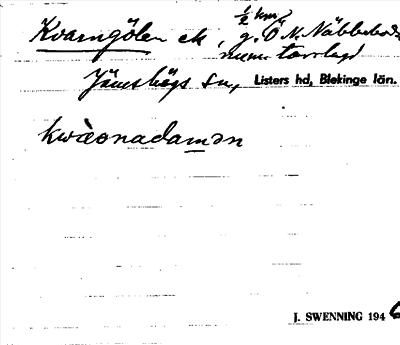 ½ km
Kvarngölen ek, g. Ö N. Näbbeboda
numn torrlagd
Jämshögs sn, Listers hd, Blekinge län.
kwàeonadamən
J. SWENNING 1946